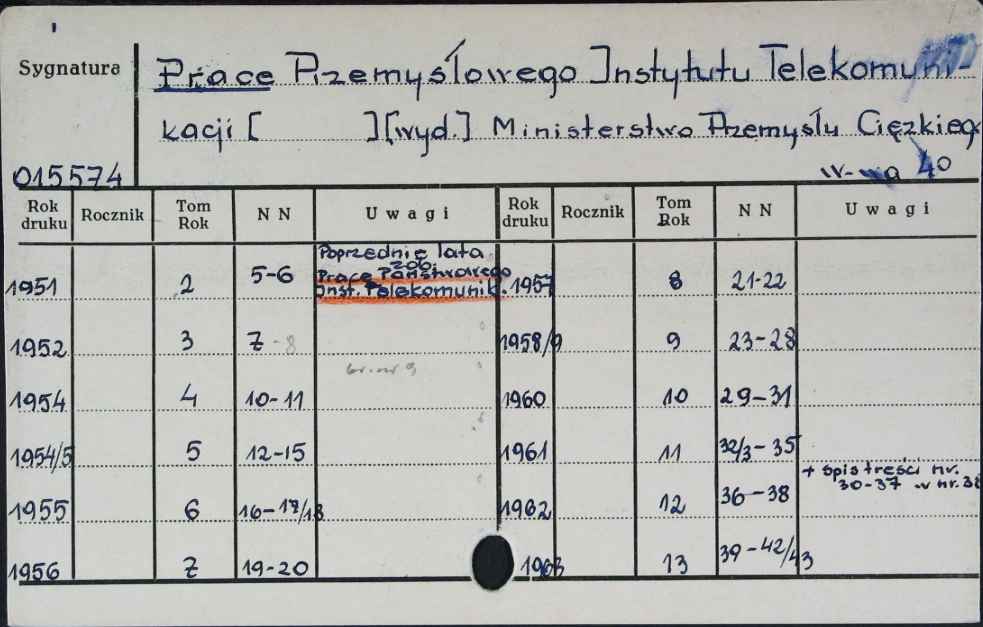 Sygnatura
Prace Przemysłowego Instytutu Telekomuni-
kacji [ ] [wyd.] Ministerstwo Przemysłu Ciężkieg
015574
W-wa 40
Rok druku Rocznik Tom Rok NN Uwagi Rok druku Rocznik Tom Rok NN Uwagi
1951 2 5-6
Poprzednie lata
zob.
Prace Państwowego
Inst. Telekomunik.
1957 8 21-22
1952 3 7-8 1958/9 9 23-28
br. nr 9
1954 4 10-11 1960 10 29-31
1954/5 5 12-15 1961 11 32/3-35
+ spis treści nr.
30-37 w nr. 38
1955 6 16-17/18 1962 12 36-38
1956 7 19-20 1963 13 39-42/43